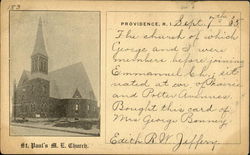 153
PROVIDENCE, R. I. Sept. 7th
The church of which
George and I were
members before joining
Emmanuel Ch., situ
nated at cor of
and Potter Avenues.
Bought this card of
Mrs George Bonney
Edith R. W. Jeffers
St. Paul's M. E. Church.